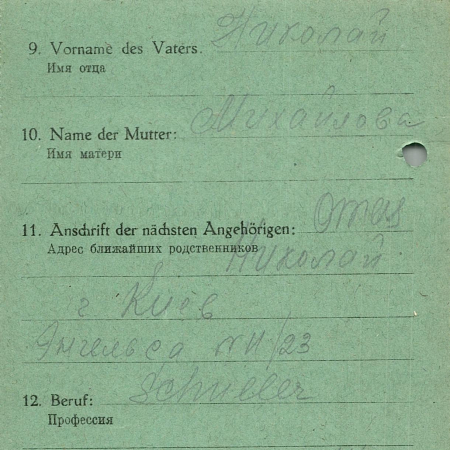 9. Vorname des Vaters. Николай
Имя отца
10. Name der Mutter: Михайлова
Имя матери
11. Anschrift der nächsten Angehörigen: Отец
Адрес ближайших родственников Николай
г Киев
Энгельса N 11/23
12. Beruf: Schüler
Профессия